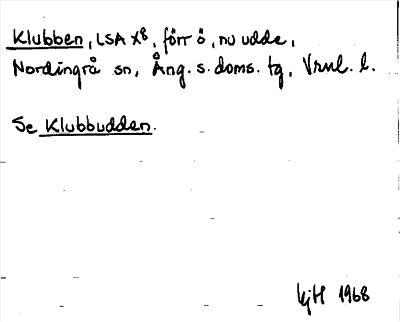 Klubben, LSA X8, förr ö, nu udde,
Nordingrå sn, Ång. s. doms. tg, Vrnl. l.
Se Klubbudden.
HjH 1968